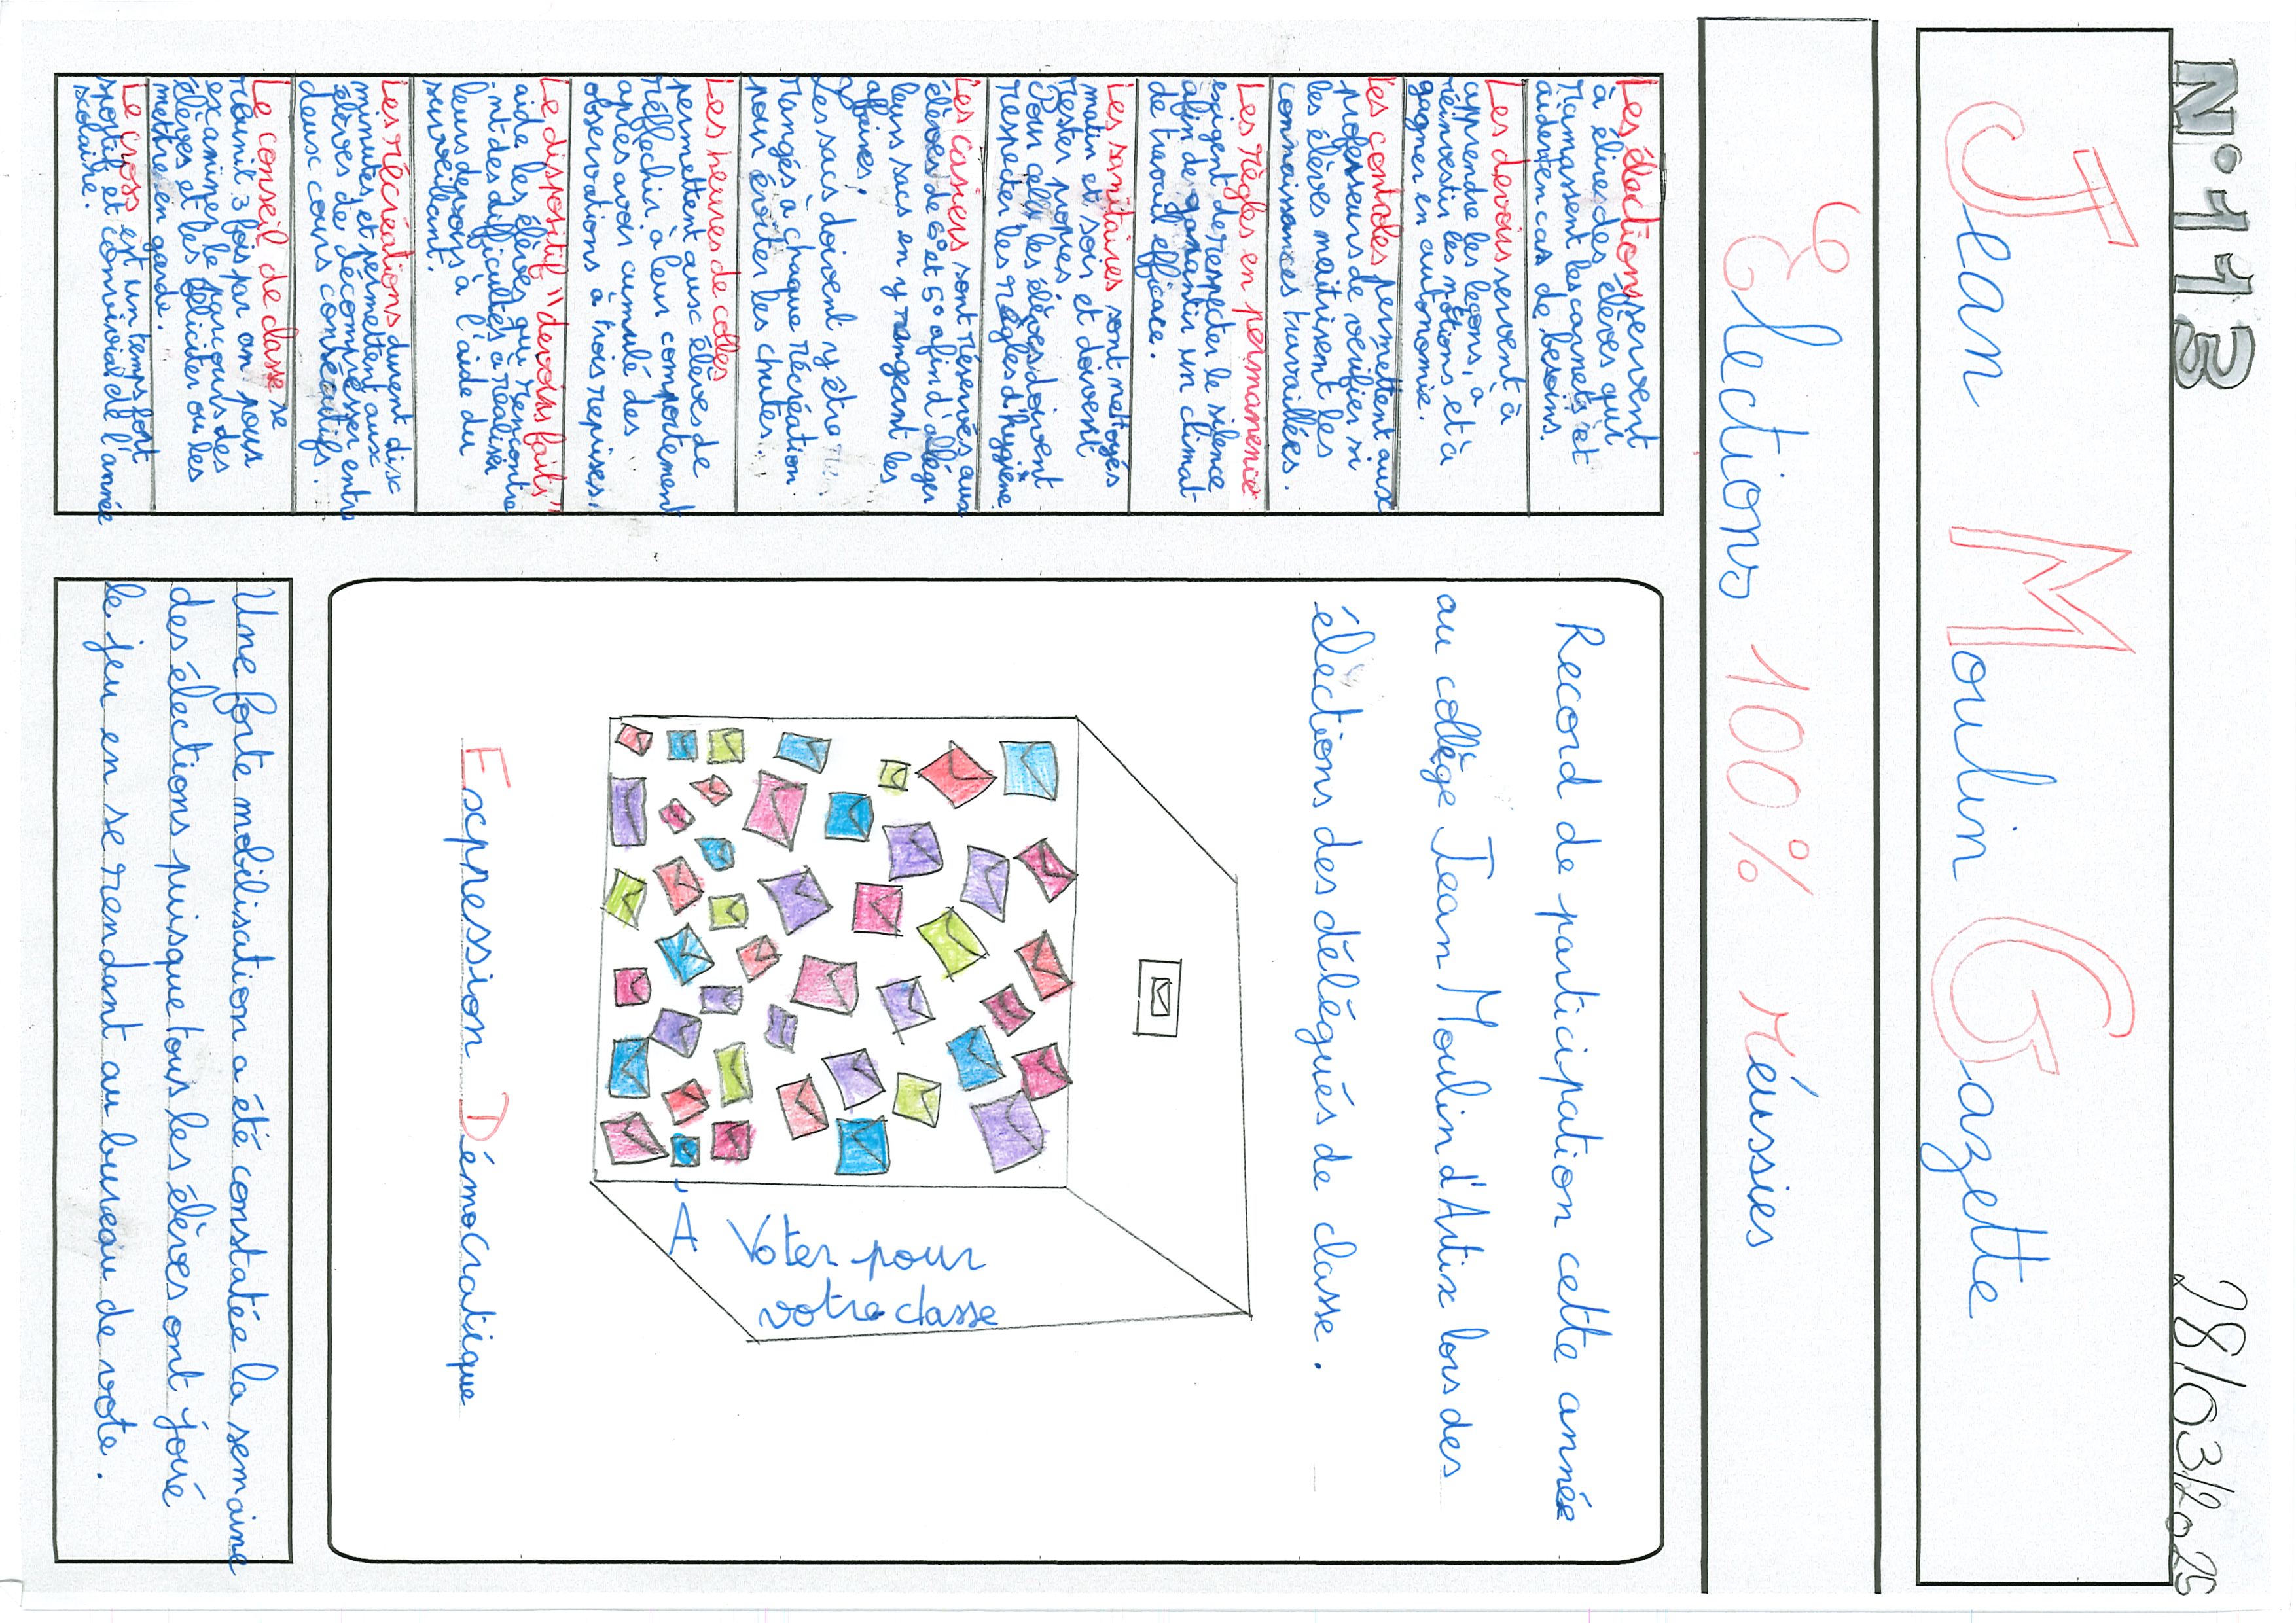 N°113
28/03/2025
Jean Moulin Gazette
Elections 100% réussies
Les élections servent
à élires des élèves qui
ramassent les carnets et
aident en cas de besoins.
Les devoirs servent à
apprendre les leçons, à
réinvestir les notions et à
gagner en autonomie.
Les contrôles permettent aux
professeurs de vérifier si
les élèves maitrisent les
connaissances travaillées.
Les règles en permanence
exigent de respecter le silence
afin de garantir un climat
de travail efficace.
Les sanitaires sont nettoyés
matin et soir et doivent
rester propres
Pour cela les élèves doivent
respecter les règles d'hygiène
Les casiers sont réservés aux
élèves de 6° et 5° afin d'alléger
leurs sacs en y rangeant les
affaires.
Les sacs doivent y être
rangés à chaque récréation
pour éviter les chutes.
Les heures de colles
permettent aux élèves de
réfléchir à leur comportement
après avoir cumulé des
observations à trois reprises.
Le dispositif "devoirs faits"
aide les élèves qui rencontre
int des difficultés à réaliser
leurs devoirs à l'aide du
surveillant.
Les récréations durent dix
minutes et permettent aux
élèves de décompresser entre
deux cours consécutifs.
Le conseil de classe se
réunit 3 fois par an pour
examiner le parcours des
élèves et les féliciter ou les
mettre en garde.
Le cross est un temps fort
sportif et convivial de l'année
scolaire.
Record de participation cette année
au collège Jean Moulin d'Artix lors des
élections des délégués de classe.
A Voter pour
votre classe
Expression Démocratique
Une forte mobilisation a été constatée la semaine
des élections puisque tous les élèves ont joué
le jeu en se rendant au bureau de vote.